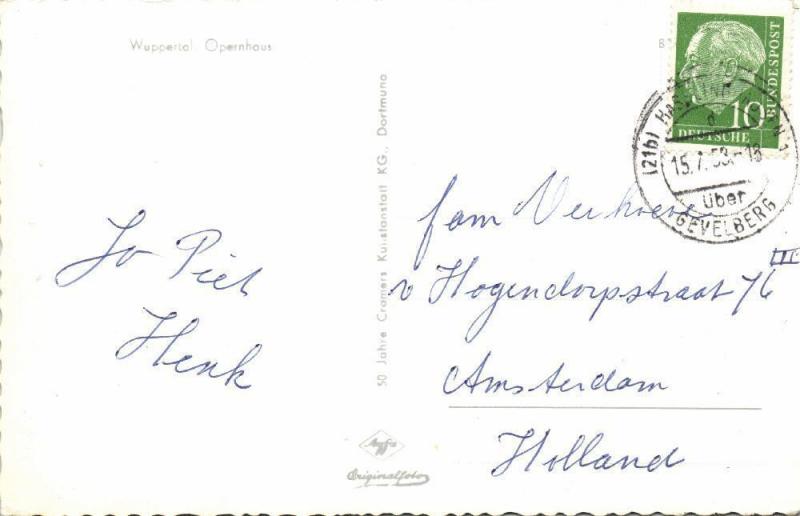 Wuppertal. Opernhaus
10
DEUTSCHE
BUNDESPOST
(21b)
über
GEVELBERG
50 Jahre Cramers Kunstanstalt KG., Dortmund
Jo Piet
Henk
fam Verhoeve
v Hogendorpstraat 76 III
Amsterdam
Holland
Agfa
Originalfoto